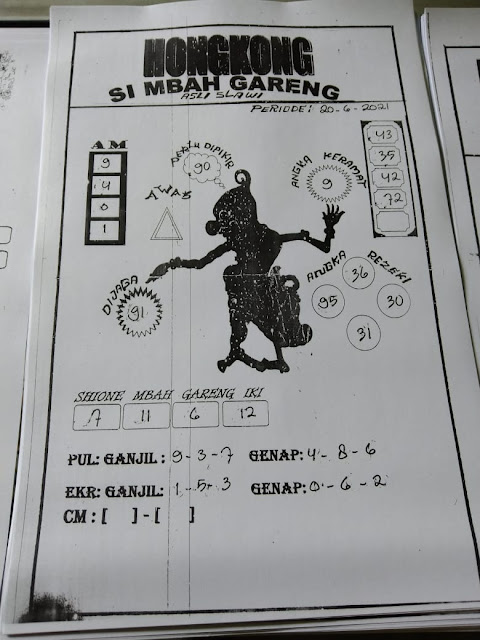 HONGKONG
SI MBAH GARENG
ASLI SLAWI
PERIODE: 20-6-2021
AM
9
4
0
1
PERLU DIPIKIR
90
AWAS
ANGKA KERAMAT
9
43
35
42
72
DIJAGA
91
ANGKA REZEKI
36
95
30
31
SHIONE MBAH GARENG IKI
7 11 6 12
PUL: GANJIL : 9-3-7 GENAP: 4-8-6
EKR: GANJIL: 1-5-3 GENAP: 0-6-2
CM : [ ] - [ ]